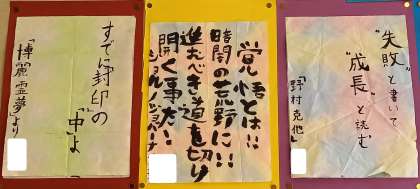 すでに封印の
「中」よ
「博麗霊夢」より
覚悟とは!!
暗闇の荒野に!!
進むべき道を切り
開く事だ!
“失敗”と書いて
“成長”と読む
「野村克也」